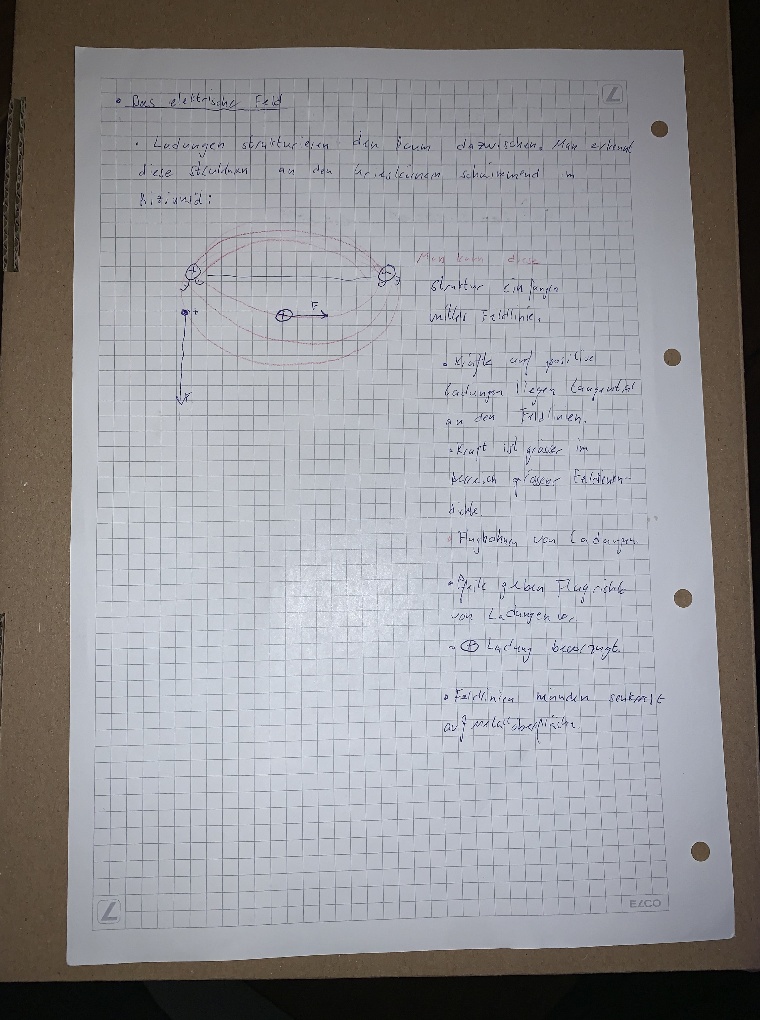 • Das elektrische Feld
• Ladungen strukturieren den Raum dazwischen. Man erkennt
diese Strukturen an den Grieskörnern schwimmend im
Rizinusöl:
+
−
Man kann diese
Struktur einfangen
mittels Feldlinie.
+
F
+
• Kräfte auf positive
Ladungen liegen tangential
an den Feldlinien.
• Kraft ist grösser im
Bereich grosser Feldlinien-
dichte
Flugbahnen von Ladungen
• Pfeile geben Flugrichte
von Ladungen
+ Ladung bevorzugt.
• Feldlinien münden senkrecht
auf Metalloberfläche
ELCO